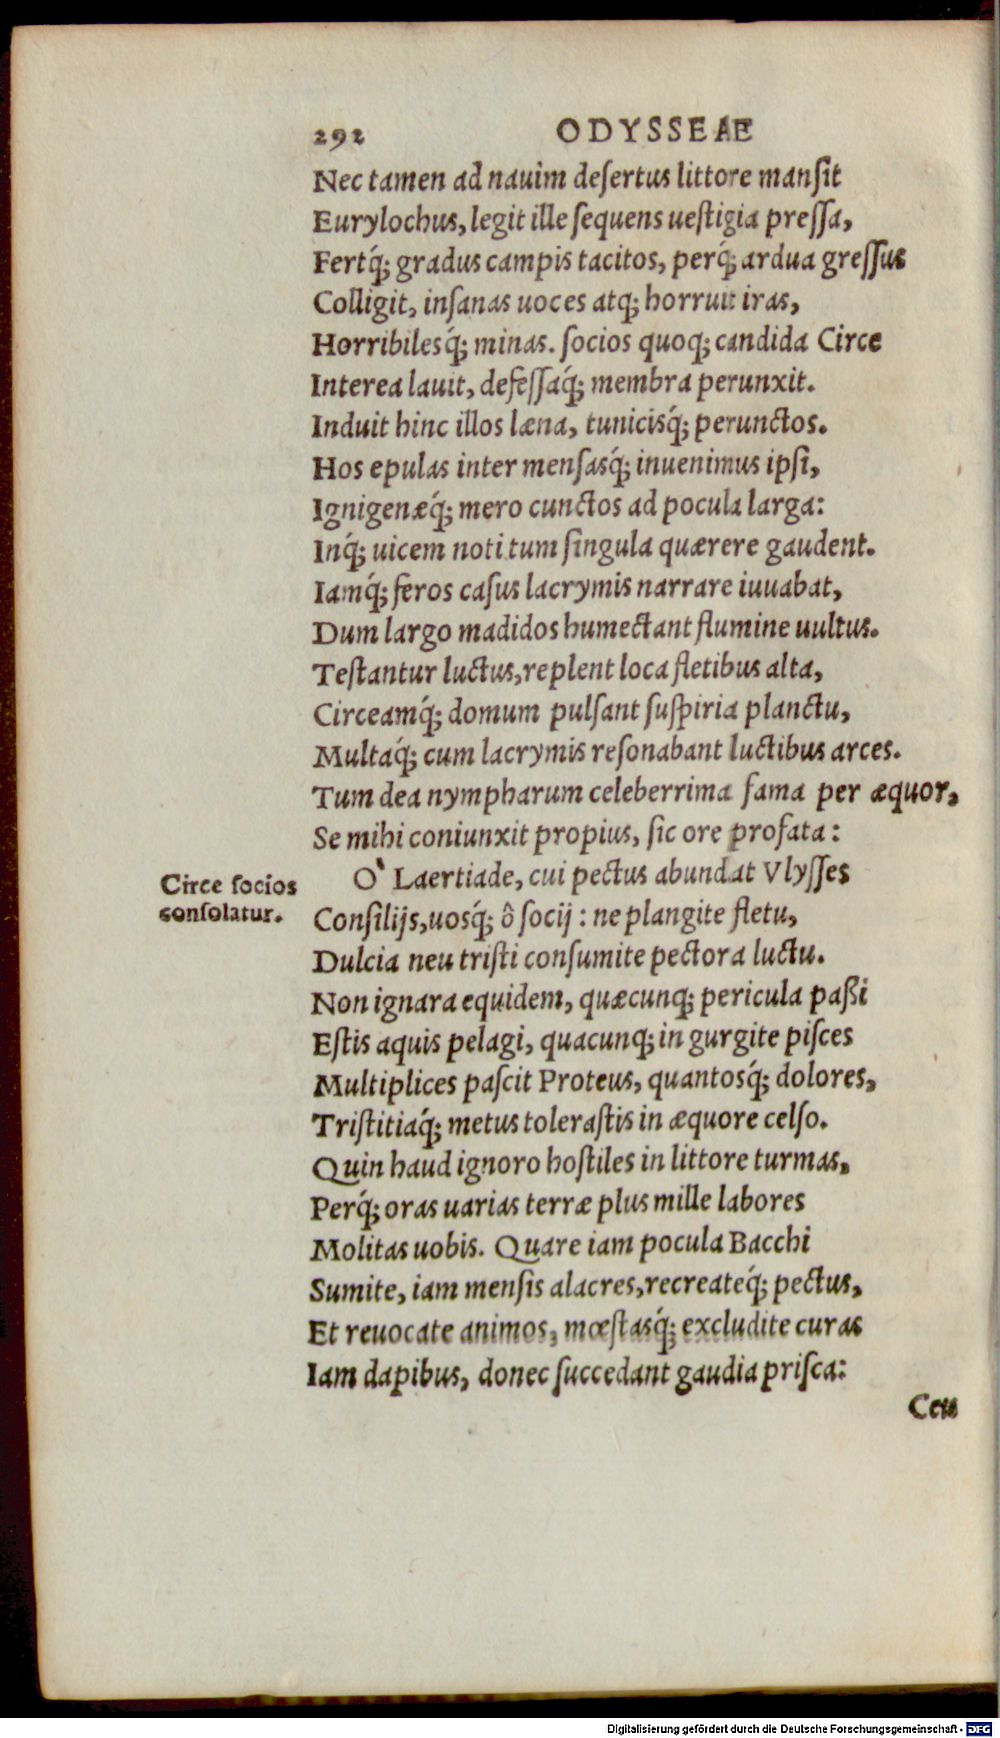 292 ODYSSEAE
Nec tamen ad nauim deſertus littore manſit
Eurylochus, legit ille ſequens ueſtigia preſſa,
Fertq́; gradus campis tacitos, perq́; ardua greſſus
Colligit, inſanas uoces atq; horruit iras,
Horribilesq́; minas. ſocios quoq; candida Circe
Interea lauit, defeſſaq́; membra perunxit.
Induit hinc illos læna, tunicisq́; perunctos.
Hos epulas inter menſasq́; inuenimus ipſi,
Ignigenæq́; mero cunctos ad pocula larga:
Inq́; uicem noti tum ſingula quærere gaudent.
Iamq́; feros caſus lacrymis narrare iuuabat,
Dum largo madidos humectant flumine uultus.
Teſtantur luctus, replent loca fletibus alta,
Circeamq́; domum pulſant ſuſpiria planctu,
Multaq́; cum lacrymis reſonabant luctibus arces.
Tum dea nympharum celeberrima fama per æquor,
Se mihi coniunxit propius, ſic ore profata:
O` Laertiade, cui pectus abundat Vlyſſes
Circe ſocios
conſolatur.
Conſilijs, uosq́; ô ſocij: ne plangite fletu,
Dulcia neu triſti conſumite pectora luctu.
Non ignara equidem, quæcunq; pericula paßi
Eſtis aquis pelagi, quacunq; in gurgite piſces
Multiplices paſcit Proteus, quantosq́; dolores,
Triſtitiaq́; metus toleraſtis in æquore celſo.
Quin haud ignoro hoſtiles in littore turmas,
Perq́; oras uarias terræ plus mille labores
Molitas uobis. Quare iam pocula Bacchi
Sumite, iam menſis alacres, recreateq́; pectus,
Et reuocate animos, mœſtasq́; excludite curas
Iam dapibus, donec ſuccedant gaudia priſca:
Ceu
Digitalisierung gefördert durch die Deutsche Forschungsgemeinschaft - DFG